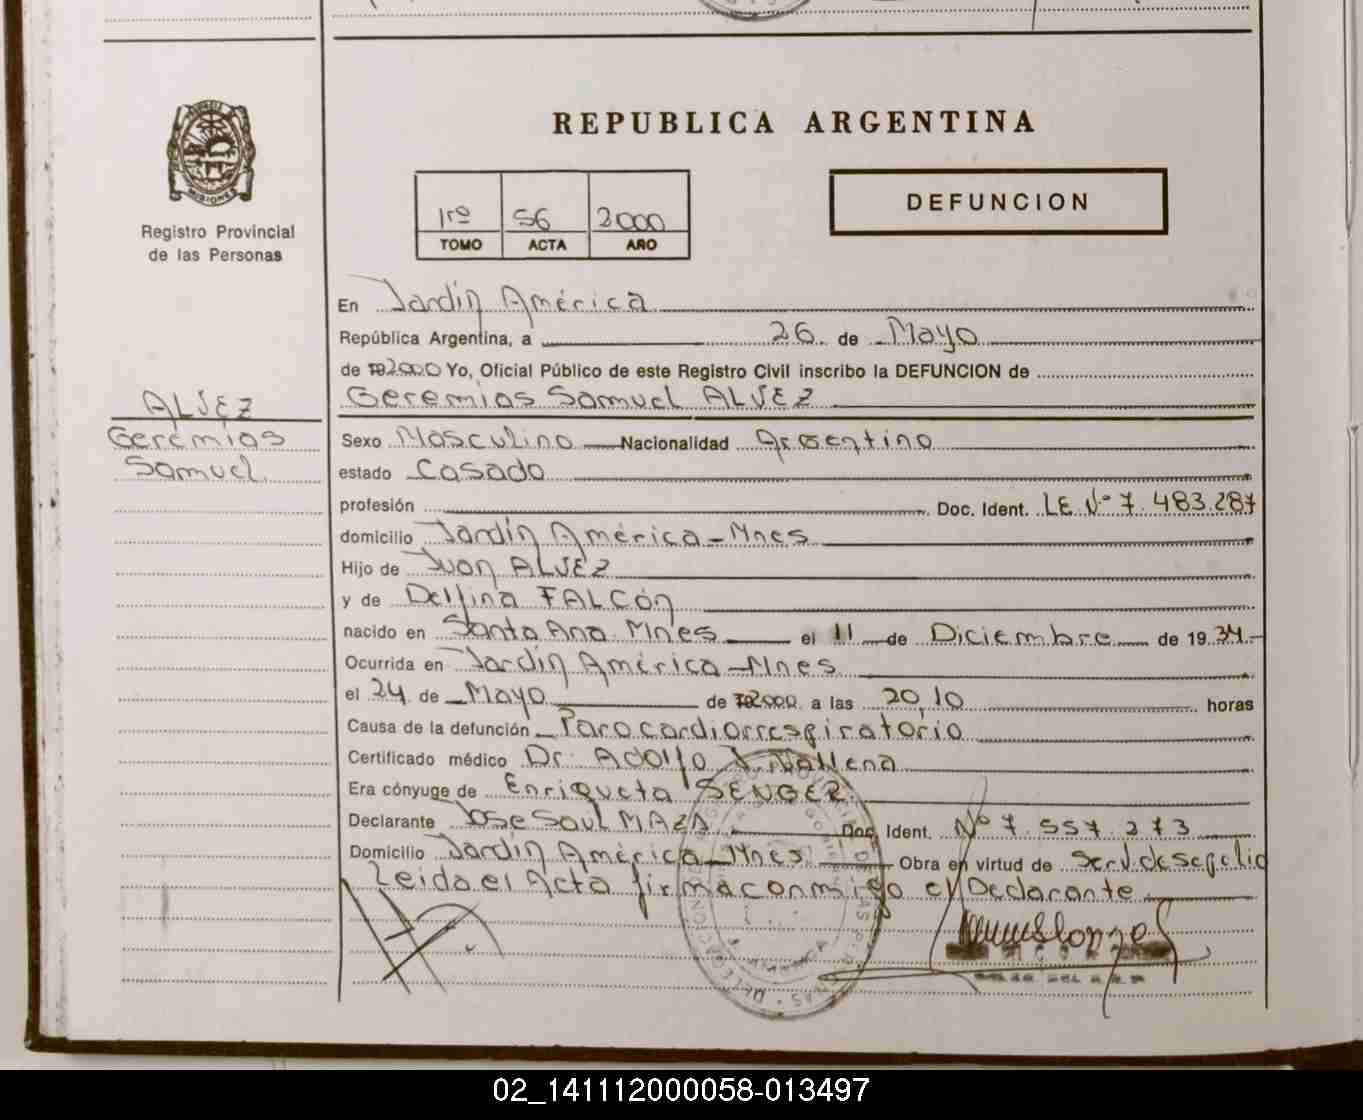 REPUBLICA ARGENTINA
Registro Provincial
de las Personas
MISIONES
1rº 56 2000
TOMO ACTA AÑO
DEFUNCION
En Jardín América
República Argentina, a 26 de Mayo
de 2000 Yo, Oficial Público de este Registro Civil inscribo la DEFUNCION de
ALVEZ
Geremias
Samuel
Geremias Samuel ALVEZ
Sexo Masculino Nacionalidad Argentino
estado Casado
profesión Doc. Ident. LE Nº 7.483.287
domicilio Jardín América - Mnes
Hijo de Juan ALVEZ
y de Delfina FALCÓN
nacido en Santa Ana Mnes el 11 de Diciembre de 19 34
Ocurrida en Jardín América - Mnes
el 24 de Mayo de 2000 a las 20,10 horas
Causa de la defunción Paro cardiorrespiratório
Certificado médico Dr. Adolfo
Era cónyuge de Enriqueta SENGER
Declarante José Saul MAZA Doc. Ident. Nº 7.557.273
Domicilio Jardín América - Mnes Obra en virtud de Serv. de sepelio
Leida el Acta firma conmigo el Declarante
02_141112000058-013497